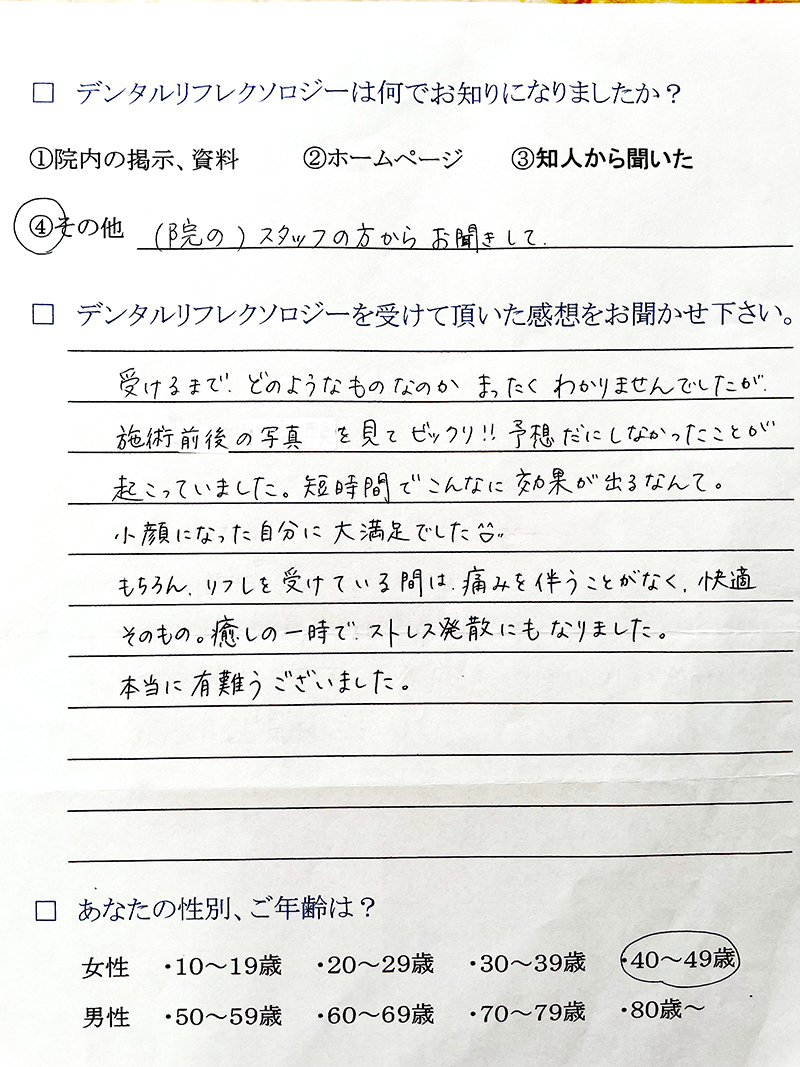 □ デンタルリフレクソロジーは何でお知りになりましたか？
①院内の掲示、資料 ②ホームページ ③知人から聞いた
④その他 (院の)スタッフの方からお聞きして.
□ デンタルリフレクソロジーを受けて頂いた感想をお聞かせ下さい。
受けるまで、どのようなものなのか まったく わかりませんでしたが、
施術前後の写真 を見てビックリ!! 予想だにしなかったことが
起こっていました。短時間でこんなに効果が出るなんて。
小顔になった自分に大満足でした
もちろん、リフレを受けている間は、痛みを伴うことがなく、快適
そのもの。癒しの一時で、ストレス発散にもなりました。
本当に有難うございました。
□ あなたの性別、ご年齢は？
女性 ・10～19歳 ・20～29歳 ・30～39歳 ・40～49歳
男性 ・50～59歳 ・60～69歳 ・70～79歳 ・80歳～